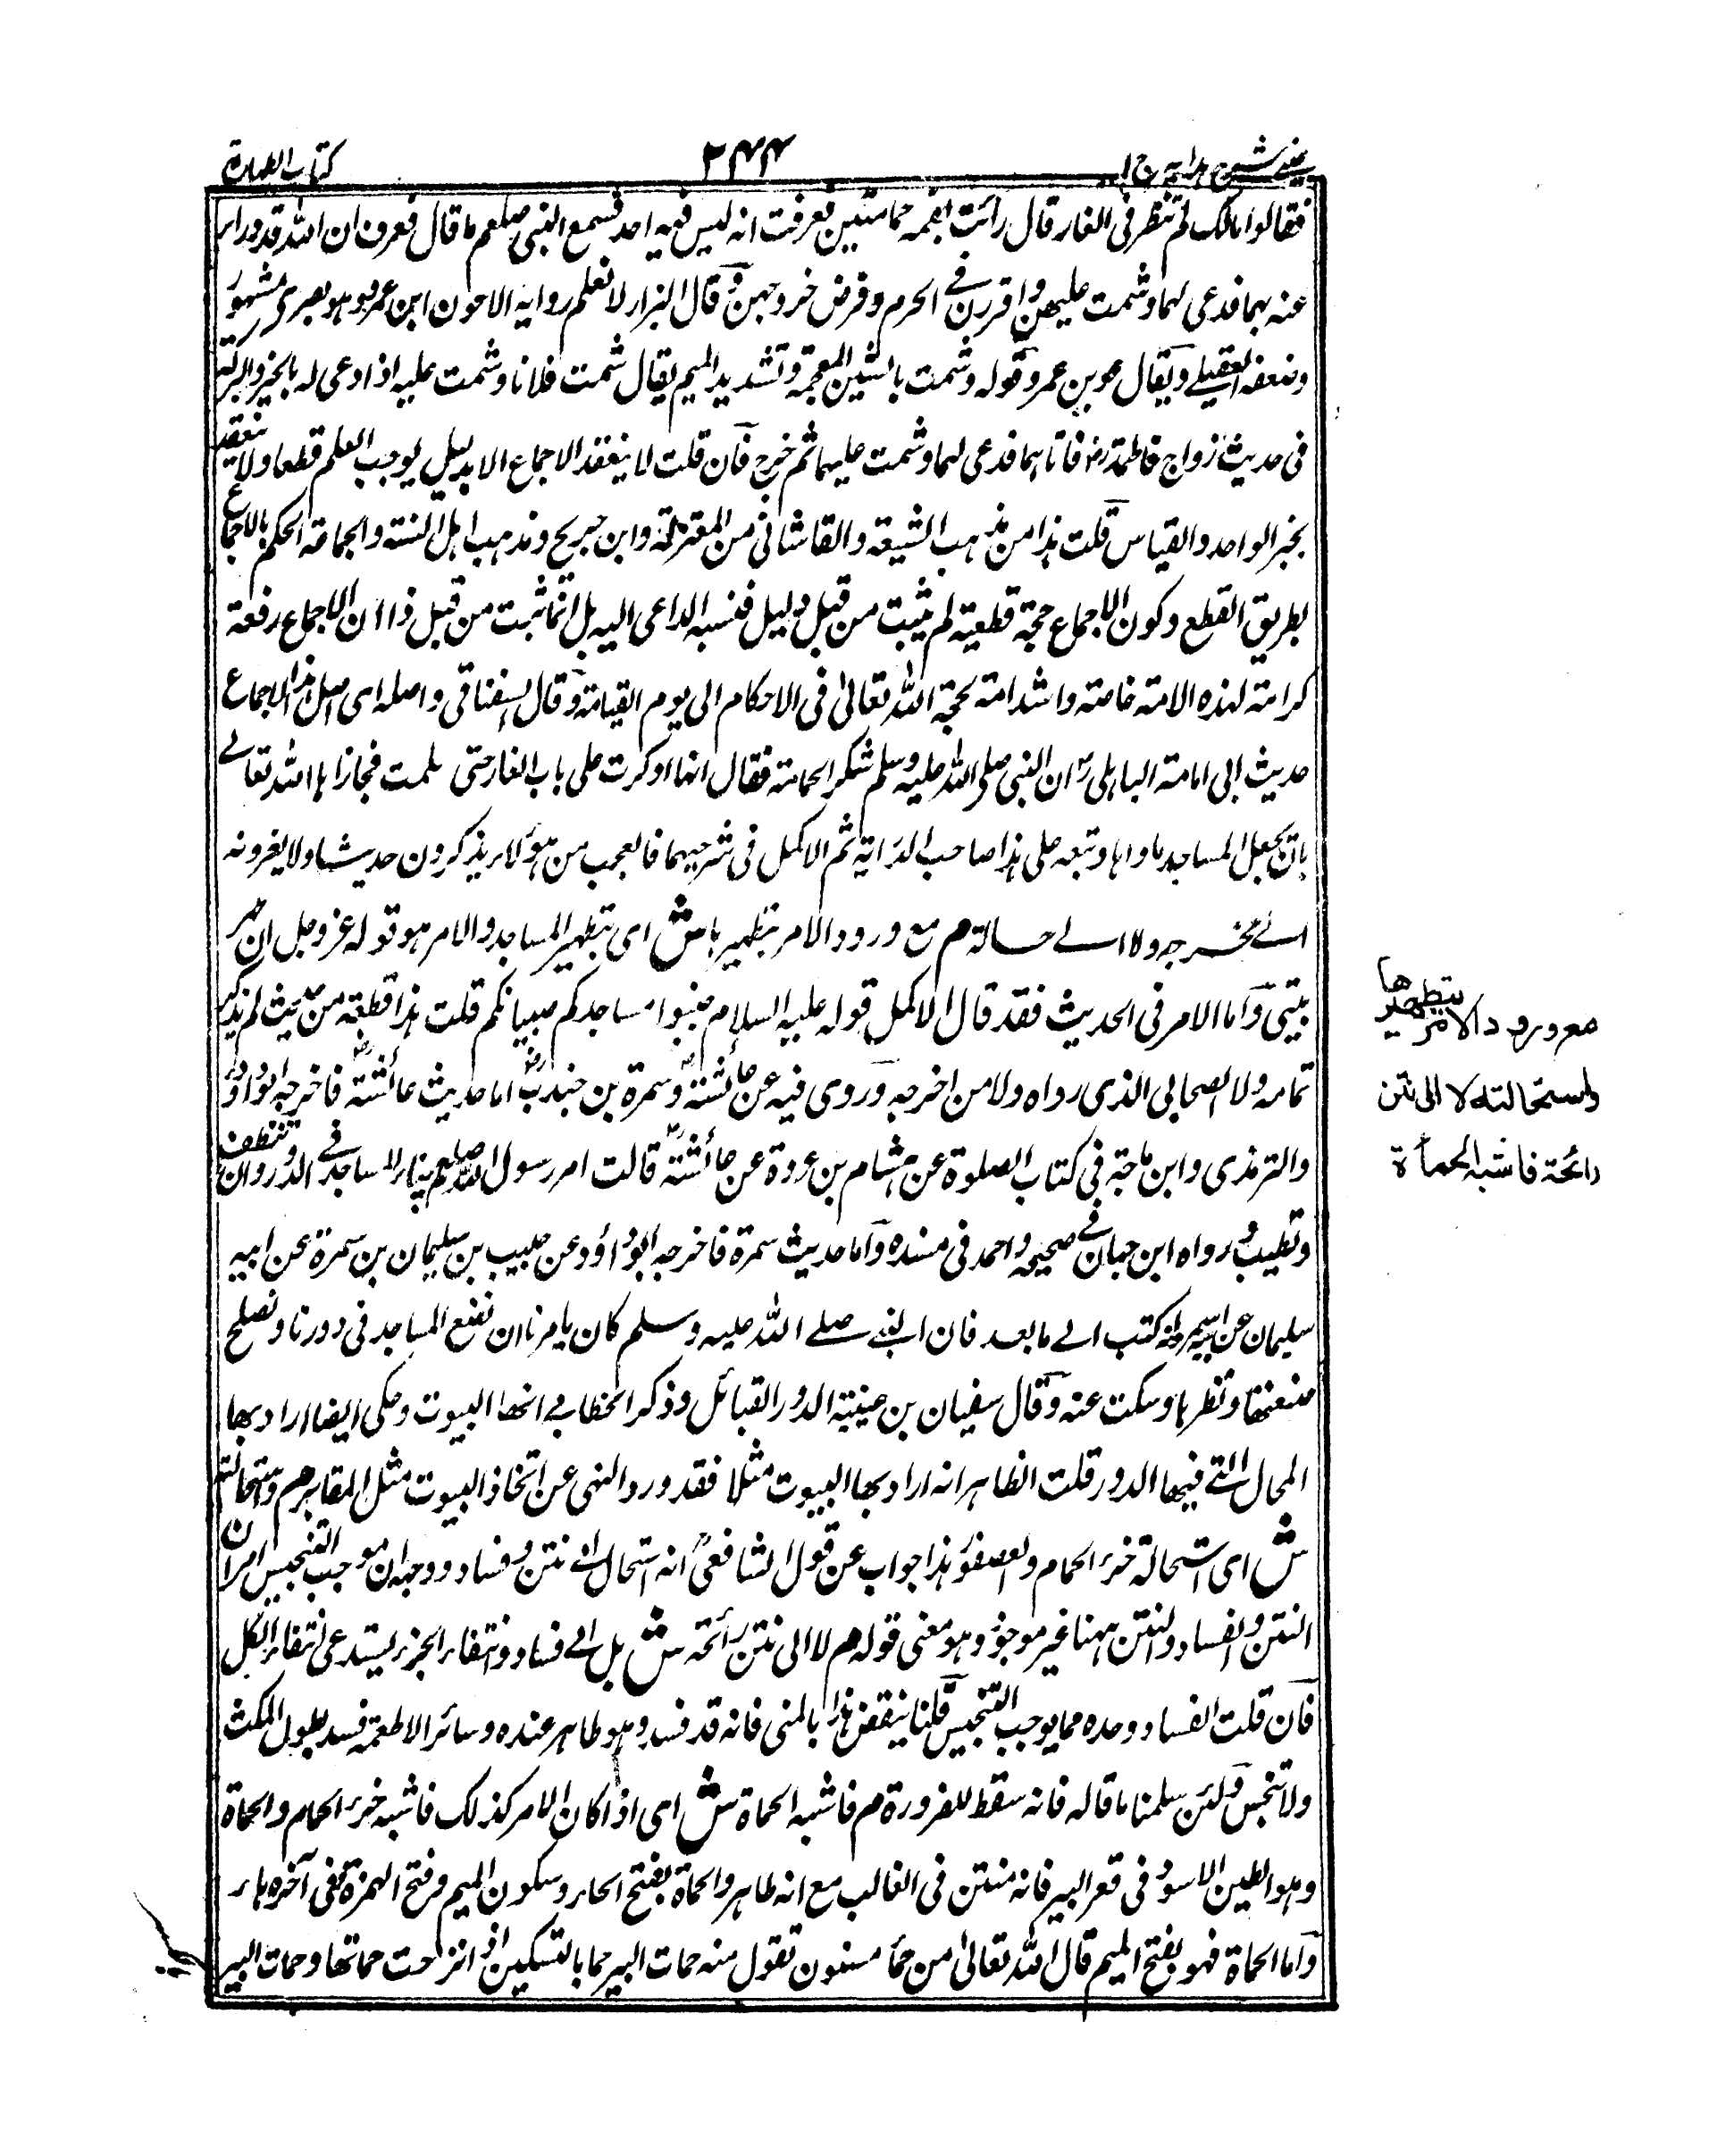 عيني شرح هدايه ج ١
٢٤٤
كتاب الطهارة
فقالوا مالك لم تنظر فى الغار قال رأت بفمه حمامتين فعرفت انه ليس فيه احد فسمع النبى صلعم ما قال فعرف ان الله قد درا
عنه بهما فدعى لهما وشمت عليهن واقررن فى الحرم وفرض خروجهن وقال البزار لا نعلم رواية الا عون ابن عمرو وهو بصرى مشهور
وضعفه العقيلى ويقال عون بن عمر وقوله وشمت بالشين المعجمة وتشديد الميم يقال شمت فلانا وشمت عليه اذا دعى له بالخير والبركة
فى حديث زواج فاطمة رض فاتاهما فدعى لهما وشمت عليهما ثم خرج فان قلت لا ينعقد الاجماع الا بدليل يوجب العلم قطعا ولا ينعقد
بخبر الواحد والقياس قلت هذا من مذهب الشيعة والقاشانى من المعتزلة وابن جريج ومذهب اهل السنة والجماعة الحكم بالاجماع
بطريق القطع وكون الاجماع حجة قطعية لم يثبت من قبل دليل فنسبه الداعى اليه بل انما ثبت من قبل ذا ان الاجماع رفعة
كرامة لهذه الامة خاصة واشدامة لحجة الله تعالى فى الاحكام الى يوم القيامة وقال السغناقى واصله اى اصل هذا الاجماع
حديث ابى امامة الباهلى رض ان النبى صلى الله عليه وسلم شكر الحمامة فقال انها اوكرت على باب الغار حتى سلمت فجازاها الله تعالى
بان يجعل المساجد ماواها وتبعه على هذا صاحب الدراية ثم الاكمل فى شرحيهما فالعجب من هؤلاء يذكرون حديثا ولا يغرونه
الى مخرجه ولا الى حالة م مع ورود الامر بتطهيرها ش اى بتطهير المساجد والامر هو قوله عز وجل ان طهر
بيتى واما الامر فى الحديث فقد قال الاكمل قوله عليه السلام جنبوا مساجدكم صبيانكم قلت هذا قطعة من حديث لم يذكر
تمامه ولا الصحابى الذى رواه ولا من اخرجه وروى فيه عن عائشة رض وسمرة بن جندب رض اما حديث عائشة رض فاخرجه ابو داؤد
والترمذى وابن ماجة فى كتاب الصلوة عن هشام بن عروة عن عائشة رض قالت امر رسول الله صلعم ببناء المساجد فى الدور وان تنظف
وتطيب ورواه ابن حبان فى صحيحه واحمد فى مسنده واما حديث سمرة فاخرجه ابو داؤد عن حبيب بن سليمان بن سمرة عن ابيه
سليمان عن ابيه سمرة انه كتب الى ما بعد فان النبى صلى الله عليه وسلم كان يامرنا ان نضع المساجد فى دورنا ونصلح
صنعتها وتطهرها وسكت عنه وقال سفيان بن عيينة الدور القبائل وذكر الخطابى انها البيوت وحكى ايضا اراد بها
المحال التى فيها الدور قلت الظاهر انه اراد بها البيوت مثلا فقد ورد النهى عن اتخاذ البيوت مثل المقابر م واستحالته
ش اى استحالة خرء الحمام والعصفور هذا جواب عن قول الشافعى رح انه استحال الى نتن وفساد ووجهه ان موجب التنجيس امران
النتن والفساد والنتن ههنا غير موجود وهو معنى قوله م لا الى نتن رائحة ش بل الى فساد وانتفاء الجزء يستدعى انتفاء الكل
فان قلت الفساد وحده مما يوجب التنجيس قلنا ينتقض هذا بالمنى فانه قد فسد وهو طاهر عنده وسائر الاطعمة فسد بطول المكث
ولا تنجس ولئن سلمنا ما قاله فانه سقط للضرورة م فاشبه الحماة ش اى اذا كان الامر كذلك فاشبه خرء الحمام والحماة
وهو الطين الاسود فى قعر البير فانه منتن فى الغالب مع انه طاهر والحماة بفتح الحاء وسكون الميم وفتح الهمزة وفى آخره هاء
واما الحماة فهو بفتح الميم قال الله تعالى من حمأ مسنون تقول منه حمات البير حما بالتسكين اذا نزحت حماتها وحمات البير
مع ورود الامر بتطهيرها
واستحالته لا الى نتن
رائحة فاشبه الحمأة